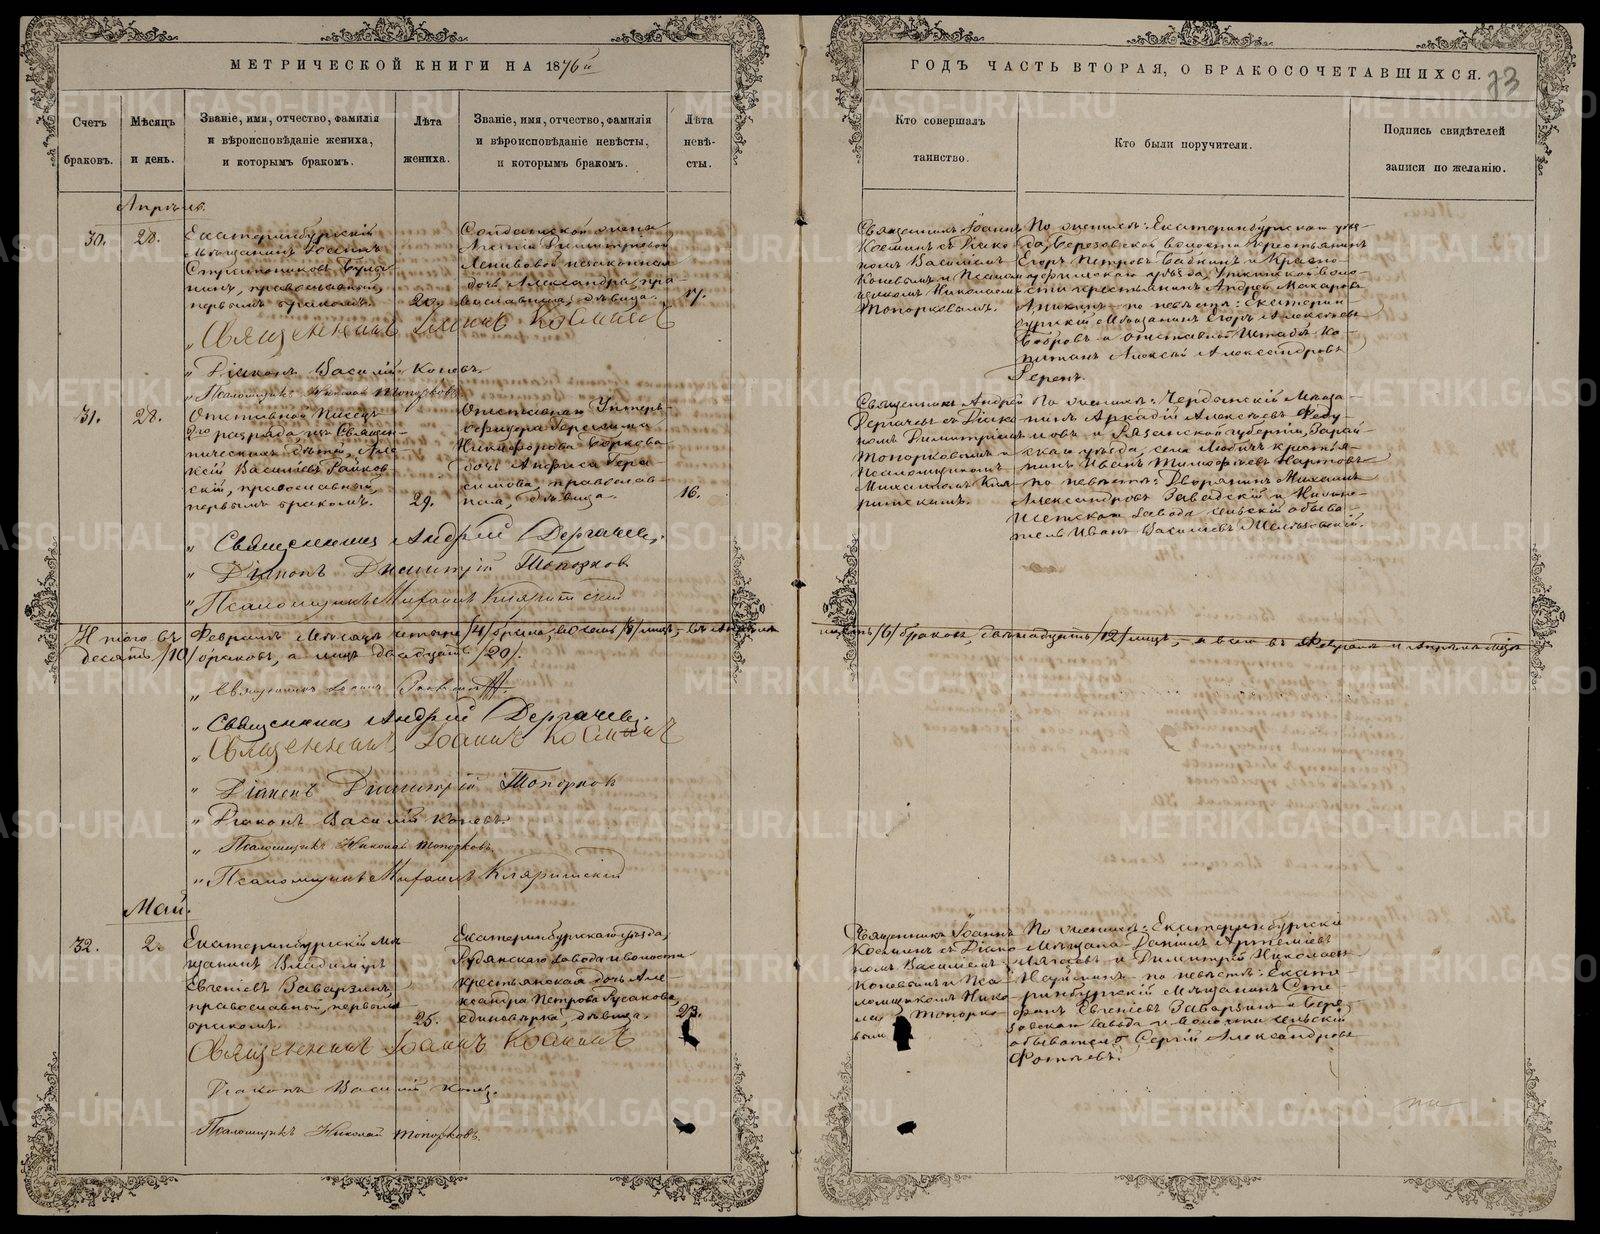 МЕТРИЧЕСКОЙ КНИГИ НА 1876й
ГОДЪ ЧАСТЬ ВТОРАЯ, О БРАКОСОЧЕТАВШИХСЯ.
73
Счетъ браковъ.
Мѣсяцъ и день.
Званіе, имя, отчество, фамилія
и вѣроисповѣданіе жениха,
и которымъ бракомъ.
Лѣта жениха.
Званіе, имя, отчество, фамилія
и вѣроисповѣданіе невѣсты,
и которымъ бракомъ.
Лѣта невѣсты.
Кто совершалъ
таинство.
Кто были поручители.
Подпись свидѣтелей
записи по желанію.
Апрѣль.
30.
28.
Екатеринбургскій
мѣщанинъ
православный,
первымъ бракомъ.
20.
Солдатской жены
дочь Александра, пра
вославная, дѣвица.
17.
Священникъ Іоаннъ
Косминъ съ Діако
номъ Василіемъ
Коневымъ и Псалом
щикомъ Николаемъ
Топорковымъ.
По женихѣ: Екатеринбургскаго уѣз
да, Березовской волости крестьянинъ
Егоръ Петровъ Бабкинъ и Красно
уфимскаго уѣзда, Уткинской воло
сти крестьянинъ Андрей Макаровъ
Аникинъ по невѣстѣ: Екатерин
бургскій мѣщанинъ Егоръ Алексѣевъ
Бобровъ и отставной Штабсъ-Ка
питанъ Алексѣй Александровъ
Священникъ Іоаннъ Косминъ
Діаконъ Василій Коневъ.
Псаломщикъ Николай Топорковъ
31.
28.
Отставной Писецъ
2го разряда, изъ Священ-
ническихъ дѣтей, Але
ксѣй Василіевъ Райков
скій, православный,
первымъ бракомъ.
29.
Отставнаго Унтеръ-
Офицера Герасима
Никифорова
дочь Анфиса Гера
симова, православ
ная, дѣвица.
16.
Священникъ Андрей
Дергачевъ съ Діако
номъ Димитріемъ
Топорковымъ и
Псаломщикомъ
Михаиломъ Кля
ритскимъ.
По женихѣ: Чердынскій Мѣща-
нинъ Аркадій Алексѣевъ Феду-
ловъ и Рязанской губерніи, Зарай-
скаго уѣзда, села Любичъ крестья-
нинъ Иванъ Тимофѣевъ Карповъ
по невѣстѣ: Дворянинъ Михаилъ
Александровъ Завадскій и Нижне-
Исетскаго завода сельскій обыва-
тель Иванъ Василіевъ
Священникъ Андрей Дергачевъ.
Діаконъ Димитрій Топорковъ
Псаломщикъ Михаилъ Кляритскій
Итого въ Февралѣ мѣсяцѣ четыре /4/ брака, восемь /8/ лицъ, въ Апрѣлѣ
шесть /6/ браковъ, двѣнадцать /12/ лицъ, а всего въ Февралѣ и Апрѣлѣ
десять /10/ браковъ, а лицъ двадцать /20/.
Священникъ Іоаннъ
Священникъ Андрей Дергачевъ.
Священникъ Іоаннъ Косминъ
Діаконъ Димитрій Топорковъ
Діаконъ Василій Коневъ.
Псаломщикъ Николай Топорковъ.
Псаломщикъ Михаилъ Кляритскій
Май.
32.
2.
Екатеринбургскій мѣ
щанинъ Владиміръ
Евгеніевъ Заварзинъ,
православный, первымъ
бракомъ.
25.
Екатеринбургскаго уѣзда,
Рудянскаго завода и волости
крестьянская дочь Але-
ксандра Петрова Русакова,
единовѣрка, дѣвица.
23.
Священникъ Іоаннъ
Косминъ съ Діако
номъ Василіемъ
Коневымъ и Пса
ломщикомъ Нико
лаемъ Топорко
вымъ
По женихѣ: Екатеринбургскіе
Мѣщане Артеміевъ
и Димитрій Николаевъ
по невѣстѣ: Екате-
ринбургскій мѣщанинъ Сте-
фанъ Евгеніевъ Заварзинъ и Бере-
зовскаго завода и волости сельскій
обыватель Сергій Александровъ
Фотѣевъ.
Священникъ Іоаннъ Косминъ
Діаконъ Василій Коневъ.
Псаломщикъ Николай Топорковъ.
METRIKI.GASO-URAL.RU